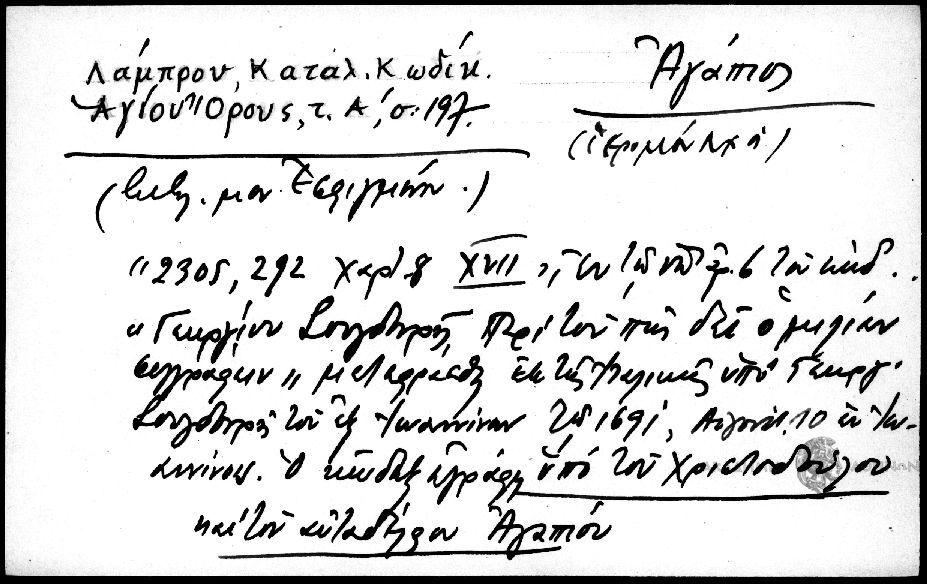 Λάμπρου, Καταλ. Κωδίκ.
Ἁγίου Ὄρους, τ. Α΄, σ. 197.
Ἀγάπιος
(ἱερομόναχος)
(βιβλ. μον. Ἐσφιγμένου.)
"2305, 292 Χαρτ. 8 XVII", ἐν τῷ ὑπ' ἀρ. 6 τοῦ κώδ..
"Γεωργίου Σουγδουρῆ, Περὶ τοῦ πῶς δεῖ ὁμιλίαν
συγγράφειν" μεταφρασθ ἐκ τῆς Ἰταλικῆς ὑπὸ Γεωργ.
Σουγδουρῆ τοῦ ἐξ Ἰωαννίνων τῷ 1691, Αὐγούστ. 10 ἐν Ἰω-
αννίνοις. Ὁ κῶδιξ ἐγράφη ὑπὸ τοῦ Χριστοδούλου
καὶ τοῦ αὐταδέλφου Ἀγαπίου